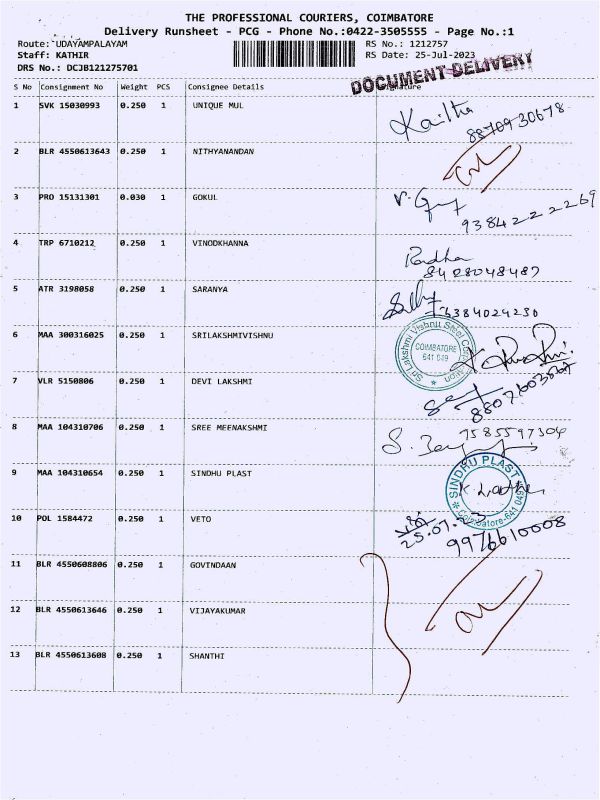 THE PROFESSIONAL COURIERS, COIMBATORE
Delivery Runsheet - PCG - Phone No.:0422-3505555 - Page No.:1
Route: UDAYAMPALAYAM RS No.: 1212757
Staff: KATHIR RS Date: 25-Jul-2023
DRS No.: DCJB121275701
DOCUMENT DELIVERY
S No Consignment No Weight PCS Consignee Details Signature
1 SVK 15030993 0.250 1 UNIQUE MUL
88709 30678
2 BLR 4550613643 0.250 1 NITHYANANDAN
3 PRO 15131301 0.030 1 GOKUL
9384222269
4 TRP 6710212 0.250 1 VINODKHANNA Radha
8428048487
5 ATR 3198058 0.250 1 SARANYA
6384024230
6 MAA 300316025 0.250 1 SRILAKSHMIVISHNU
Sri Lakshmi Vishnu Steel Corporation
COIMBATORE
641 049
7 VLR 5150806 0.250 1 DEVI LAKSHMI
8 MAA 104310706 0.250 1 SREE MEENAKSHMI
7585597304
9 MAA 104310654 0.250 1 SINDHU PLAST
SINDHU PLAST
Coimbatore-641 049
10 POL 1584472 0.250 1 VETO
25.07.23
9976610008
11 BLR 4550608806 0.250 1 GOVINDAAN
12 BLR 4550613646 0.250 1 VIJAYAKUMAR
13 BLR 4550613608 0.250 1 SHANTHI